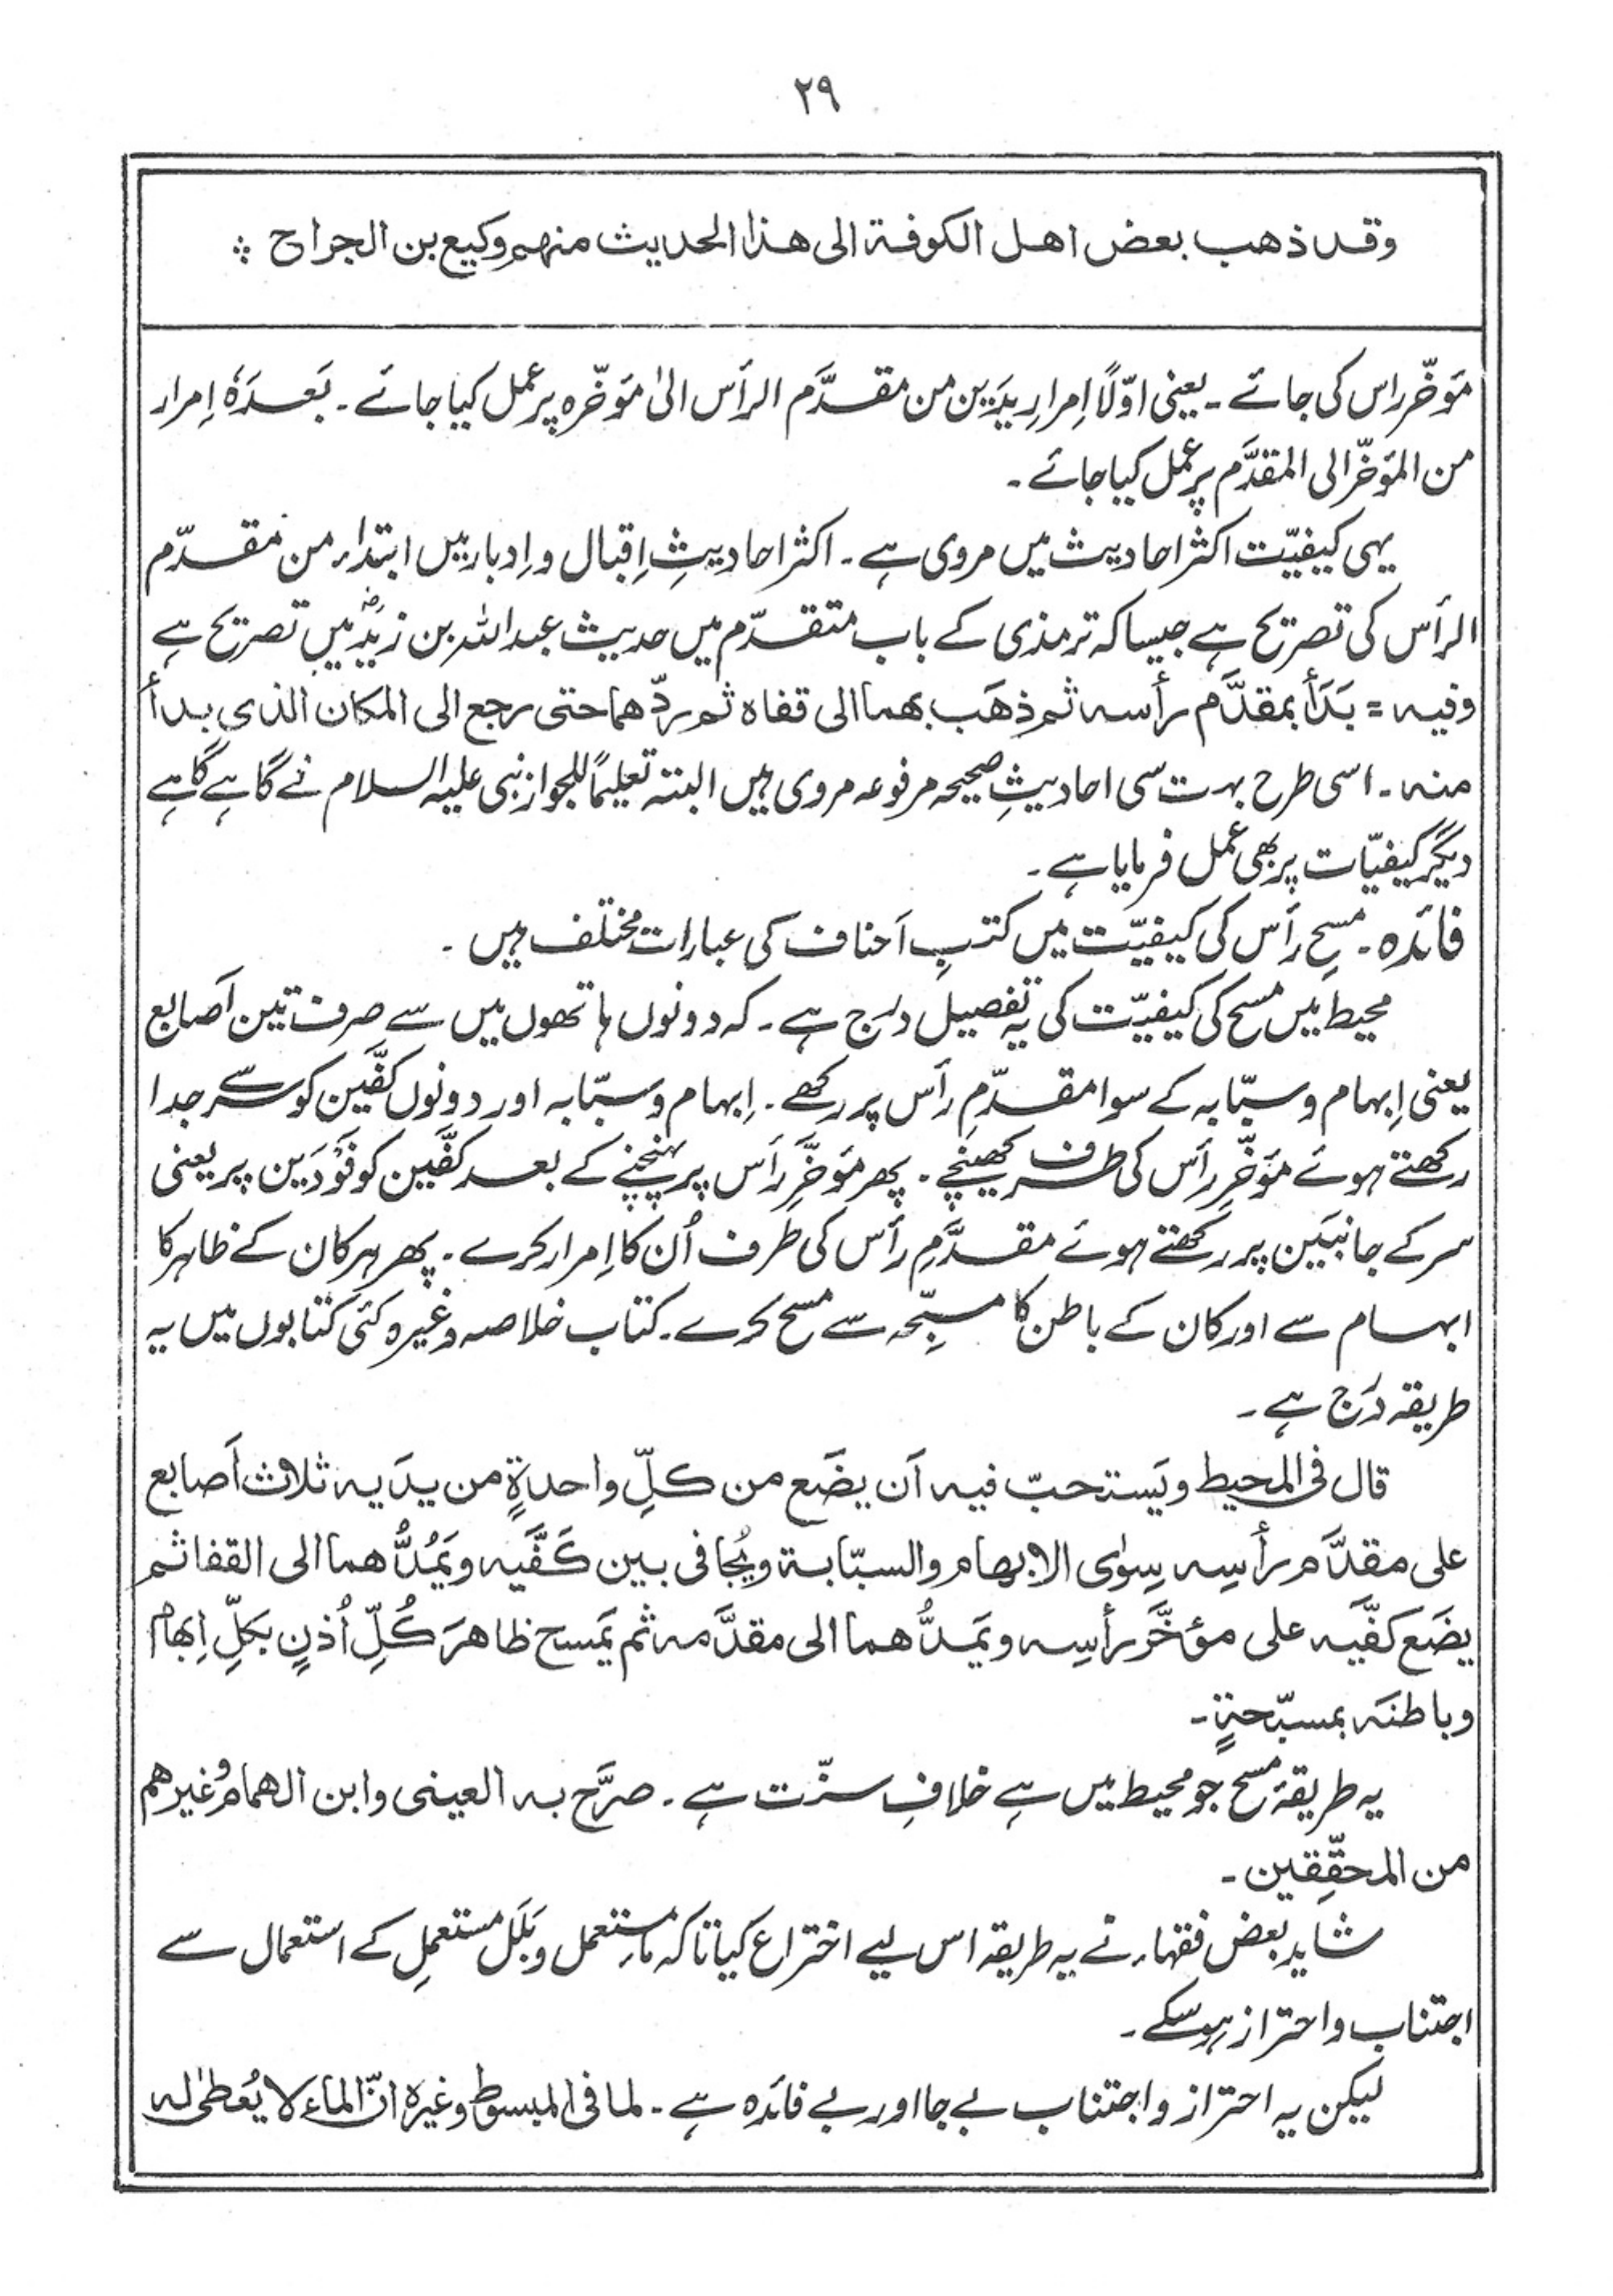 ۲۹
وقد ذهب بعض اهل الكوفة الى هذا الحديث منهم وكيع بن الجراح ؞
مَؤخّر راس کی جائے۔ یعنی اوّلًا اِمرارِ یدَین من مقدَّم الرأس الیٰ مَؤخّرہ پر عمل کیا جائے۔ بَعدَہٗ اِمرار
من المؤخّر الی المقدَّم پر عمل کیا جائے۔
یہی کیفیّت اکثر احادیث میں مروی ہے۔ اکثر احادیثِ اِقبال و اِدبار میں ابتداء من مقدّم
الرأس کی تصریح ہے جیسا کہ ترمذی کے باب متقدّم میں حدیث عبداللہ بن زیدؓ میں تصریح ہے
وفیہ = بَدَأ بمقدَّم رأسہ ثم ذھَب بھما الی قفاہ ثم ردّھما حتی رجع الی المکان الذی بدأ
منہ۔ اسی طرح بہت سی احادیثِ صحیحہ مرفوعہ مروی ہیں البتہ تعلیمًا للجواز نبی علیہ السلام نے گاہے گاہے
دیگر کیفیّات پر بھی عمل فرمایا ہے۔
فائدہ۔ مسحِ رأس کی کیفیّت میں کتبِ اَحناف کی عبارات مختلف ہیں۔
محیط میں مسح کی کیفیّت کی یہ تفصیل درج ہے۔ کہ دونوں ہاتھوں میں سے صرف تین اَصابع
یعنی اِبہام و سبّابہ کے سوا مقدّمِ رأس پر رکھے۔ اِبہام و سبّابہ اور دونوں کفَّین کو سر سے جدا
رکھتے ہوئے مؤخّرِ رأس کی طرف کھینچے۔ پھر مؤخَّرِ رأس پر پہنچنے کے بعد کفَّین کو فَوْدَین پر یعنی
سر کے جانبَین پر رکھتے ہوئے مقدَّمِ رأس کی طرف اُن کا اِمرار کرے۔ پھر ہر کان کے ظاہر کا
ابہام سے اور کان کے باطن کا مسبِّحہ سے مسح کرے۔ کتاب خلاصہ وغیرہ کئی کتابوں میں یہ
طریقہ درج ہے۔
قال فی المحیط ویَستحبّ فیہ اَن یضَع من کلِّ واحدةٍ من یدَیہ ثلاث اَصابع
علی مقدَّم رأسِہ سِوٰی الابھام والسبّابة ویُجافی بین کَفَّیہ ویَمُدُّھما الی القفا ثم
یضَع کفَّیہ علی مؤخَّر رأسِہ ویَمدُّھما الی مقدَّمہ ثم یَمسح ظاھرَ کُلِّ اُذنٍ بکلِّ اِبھام
وباطنَہ بمسبّحةٍ۔
یہ طریقۂ مسح جو محیط میں ہے خلافِ سنّت ہے۔ صرَّح بہ العینی وابن الھمام وغیرھم
من المحقِّقین۔
شاید بعض فقہاء نے یہ طریقہ اس لیے اختراع کیا تاکہ ماءِ مستعمل و بَلَل مستعمل کے استعمال سے
اجتناب و احتراز ہوسکے۔
لیکن یہ احتراز و اجتناب بے جا اور بے فائدہ ہے۔ لما فی المبسوط وغیرہ انّ الماء لا یُعطیٰ لہ